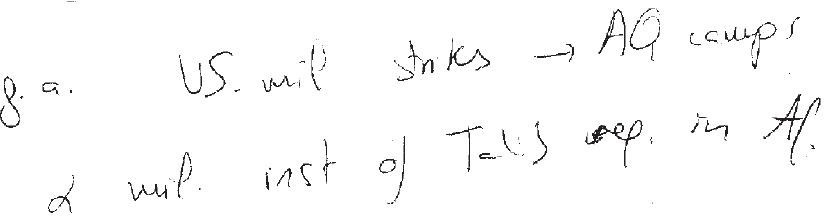 g.a. US. mil strikes → AQ camps
& mil. inst of Talib reg. in Af.